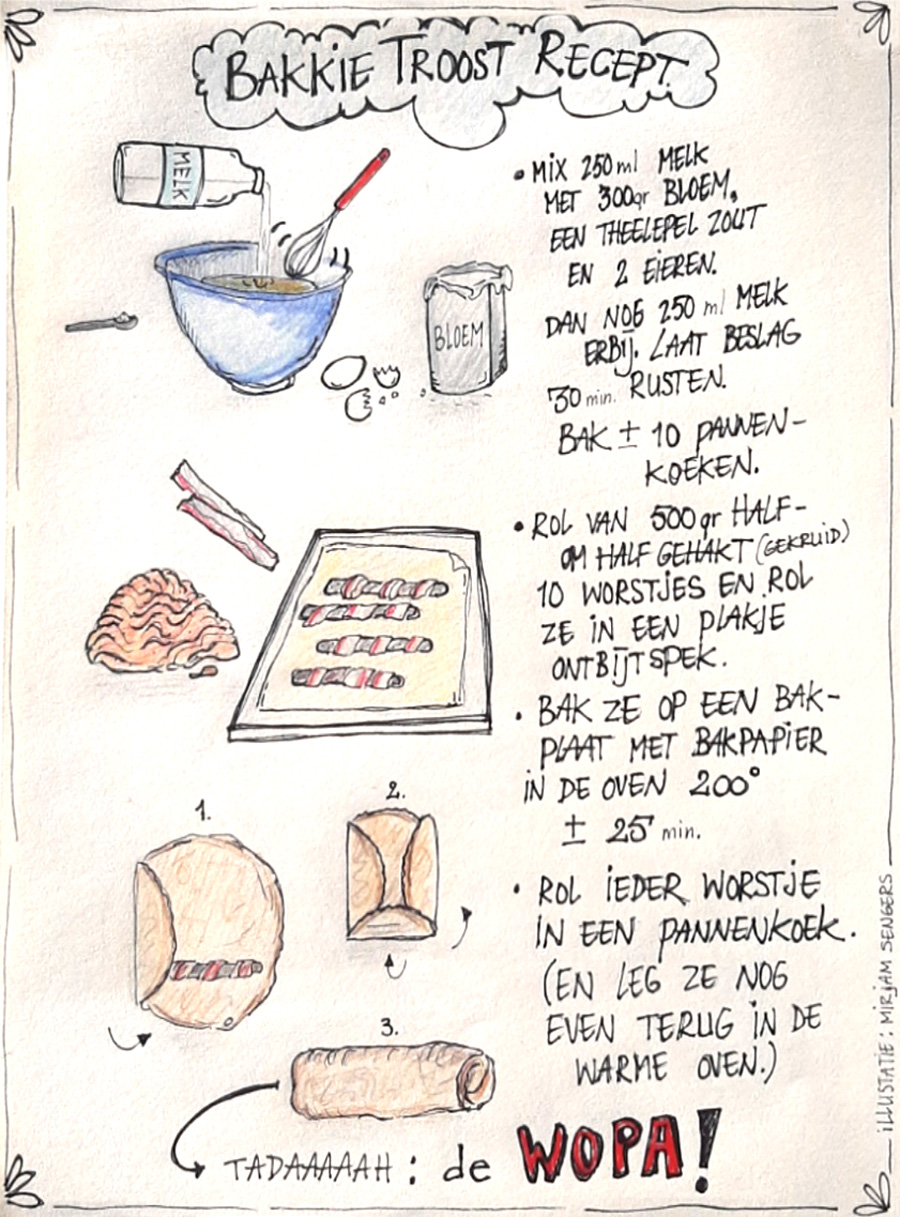 BAKKIE TROOST RECEPT
MELK
BLOEM
• MIX 250 ml MELK
MET 300gr BLOEM,
EEN THEELEPEL ZOUT
EN 2 EIEREN.
DAN NOG 250 ml MELK
ERBIJ. LAAT BESLAG
30 min. RUSTEN.
BAK ± 10 PANNEN-
KOEKEN.
• ROL VAN 500gr HALF-
OM HALF GEHAKT (GEKRUID)
10 WORSTJES EN ROL
ZE IN EEN PLAKJE
ONTBIJTSPEK.
• BAK ZE OP EEN BAK-
PLAAT MET BAKPAPIER
IN DE OVEN 200°
± 25 min.
• ROL IEDER WORSTJE
IN EEN PANNENKOEK.
(EN LEG ZE NOG
EVEN TERUG IN DE
WARME OVEN.)
1.
2.
3.
TADAAAAAH : de WOPA!
ILLUSTATIE: MIRJAM SENGERS